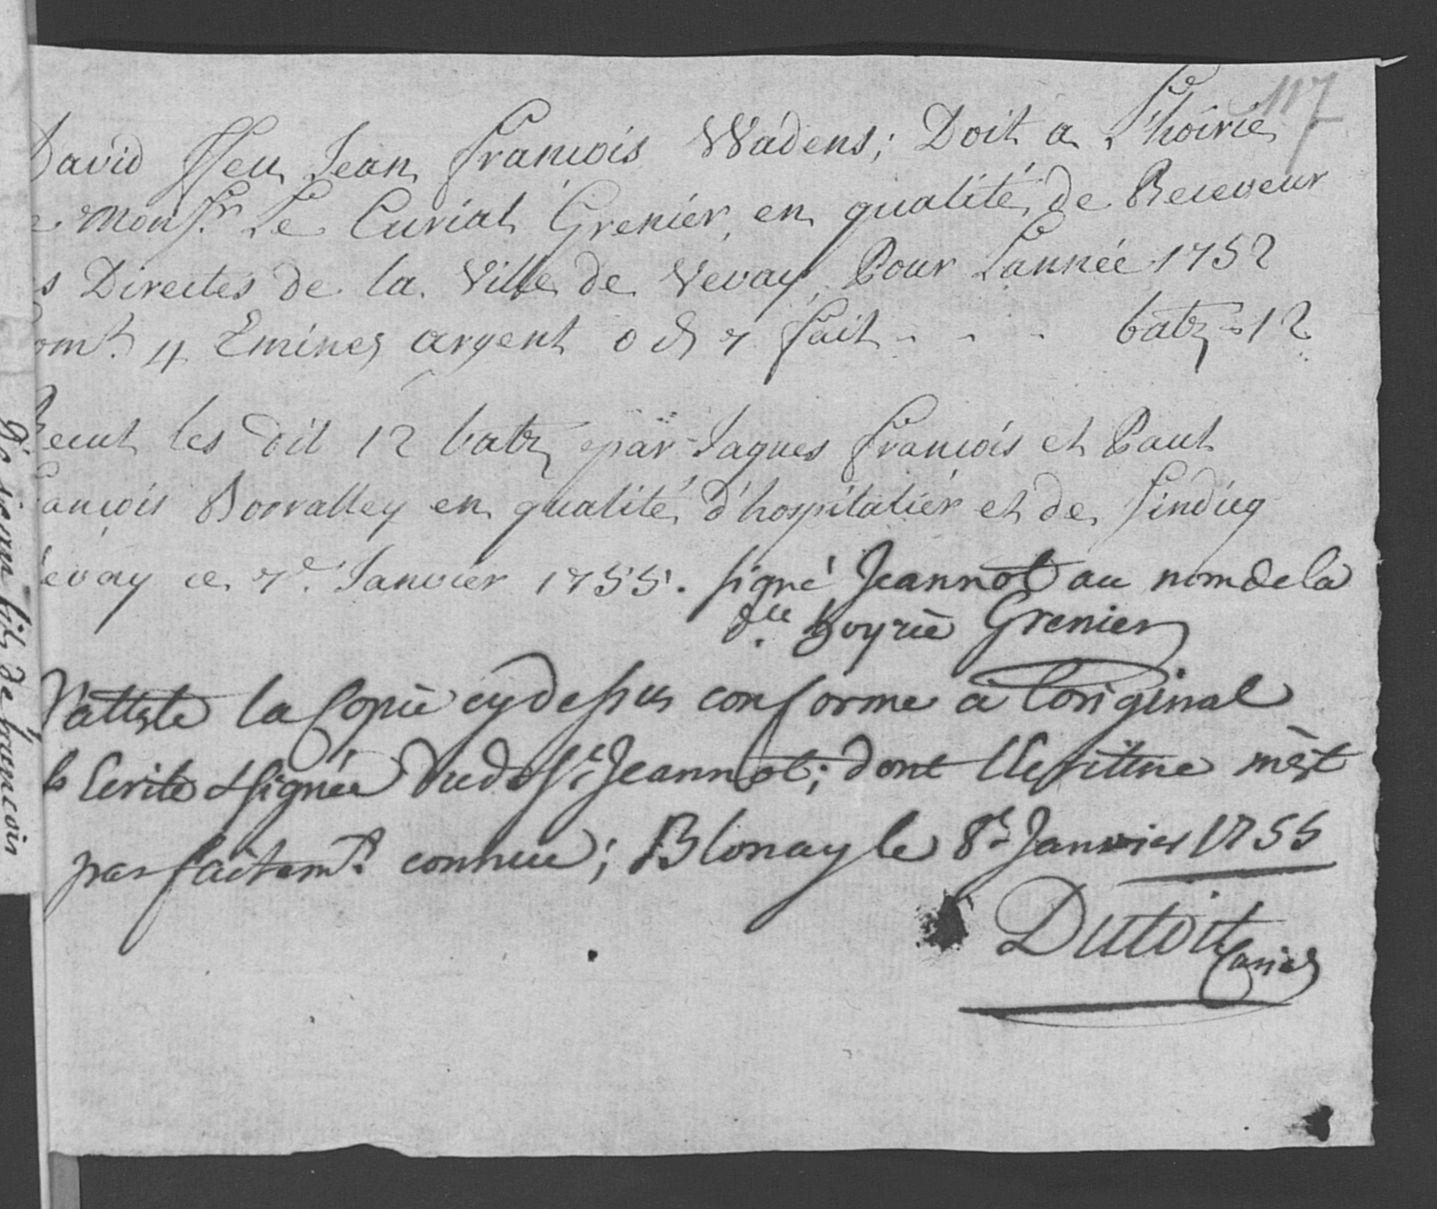 117
David ffeu Jean François Wadens; Doit a L'hoirie
de Monsr. Le Curial Grenier, en qualité de Receveur
Directes de la Ville de Vevay, Pour Lannée 1752
4 Emines argent 0 ch 7 fait - - - batz - 12
Recut les dit 12 batz par Jaques François et Paul
François Borralley en qualité d'hospitalier et de sindicq
Vevay ce 7e. Janvier 1755. signé Jeannot au nom de la
dte. hoyrie Grenier
J'atteste la Copie cydessus conforme à Loriginal
Ecrite & signée dudt Sr. Jeannot; dont lEcritture m'est
parfaitemt. connue; Blonay le 8e Janvier 1755
Dutoit
Curial
fils de francois